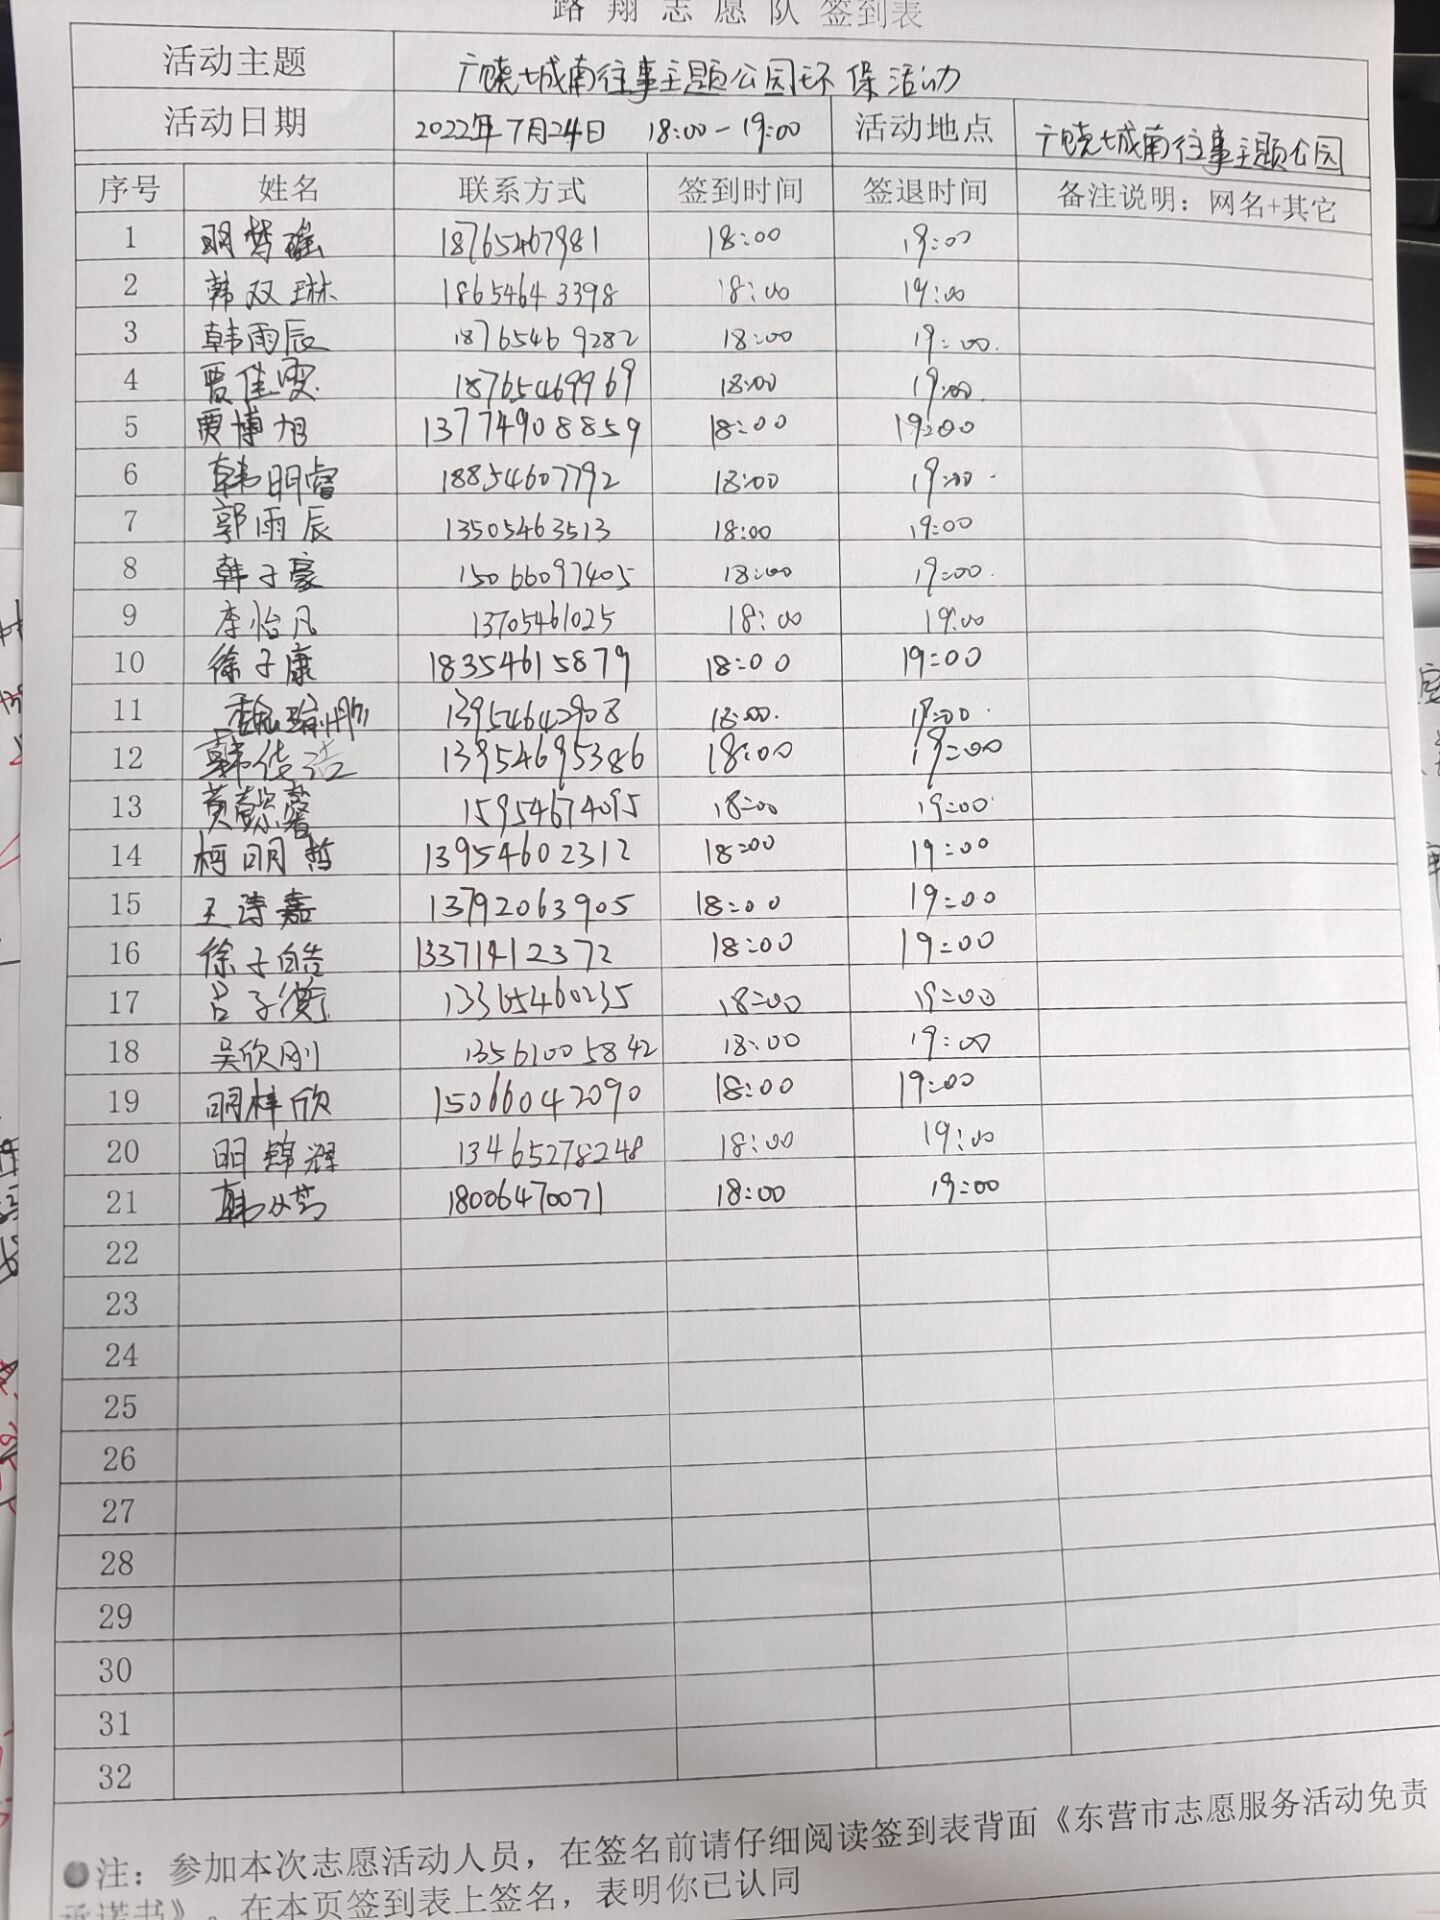 路翔志愿队 签到表
活动主题 广饶城南往事主题公园环保活动
活动日期 2022年7月24日 18:00-19:00 活动地点 广饶城南往事主题公园
序号 姓名 联系方式 签到时间 签退时间 备注说明：网名+其它
1 明梦瑶 18765467981 18:00 19:00
2 韩双琳 18654643398 18:00 19:00
3 韩雨辰 18765469282 18:00 19:00.
4 贾佳雯 18765469969 18:00 19:00.
5 贾博旭 13774908859 18:00 19:00
6 韩明睿 18854607792 18:00 19:00
7 郭雨辰 13505463513 18:00 19:00
8 韩子豪 15066097405 18:00 19:00.
9 李怡凡 13705461025 18:00 19:00
10 徐子康 18354615879 18:00 19:00
11 13954642908 18:00. 19:00
12 韩华浩 13954695386 18:00 19:00
13 15954674095 18:00 19:00
14 柯明哲 13954602312 18:00 19:00
15 王诗嘉 13792063905 18:00 19:00
16 徐子皓 13371412372 18:00 19:00
17 吕子衡 13365460235 18:00 19:00
18 吴欣刚 13561005842 18:00 19:00
19 明梓欣 15066042090 18:00 19:00
20 明锦辉 13465278248 18:00 19:00
21 18006470071 18:00 19:00
22
23
24
25
26
27
28
29
30
31
32
●注：参加本次志愿活动人员，在签名前请仔细阅读签到表背面《东营市志愿服务活动免责
承诺书》。在本页签到表上签名，表明你已认同